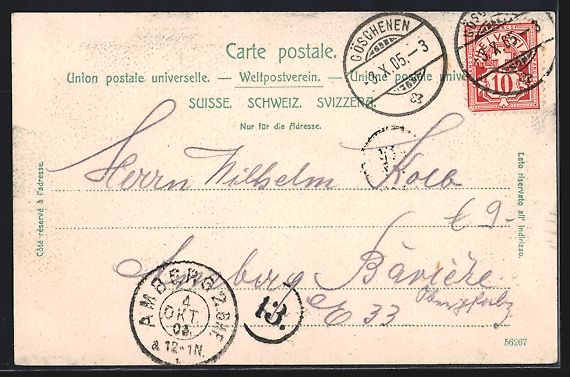 Carte postale.
Union postale universelle. — Weltpostverein. — Unione postale universale
SUISSE. SCHWEIZ. SVIZZERA.
Nur für die Adresse.
GÖSCHENEN
3.X.05.-3
HELVETIA
10
Côté réservé à l'adresse.
Lato riservato all' indirizzo.
Herrn Wilhelm Kolb
€ 9-
Amberg Bavière
Oberpfalz
E 33
AMBERG 2. BHF.
4
OKT.
05.
12-1N.
13.
56267